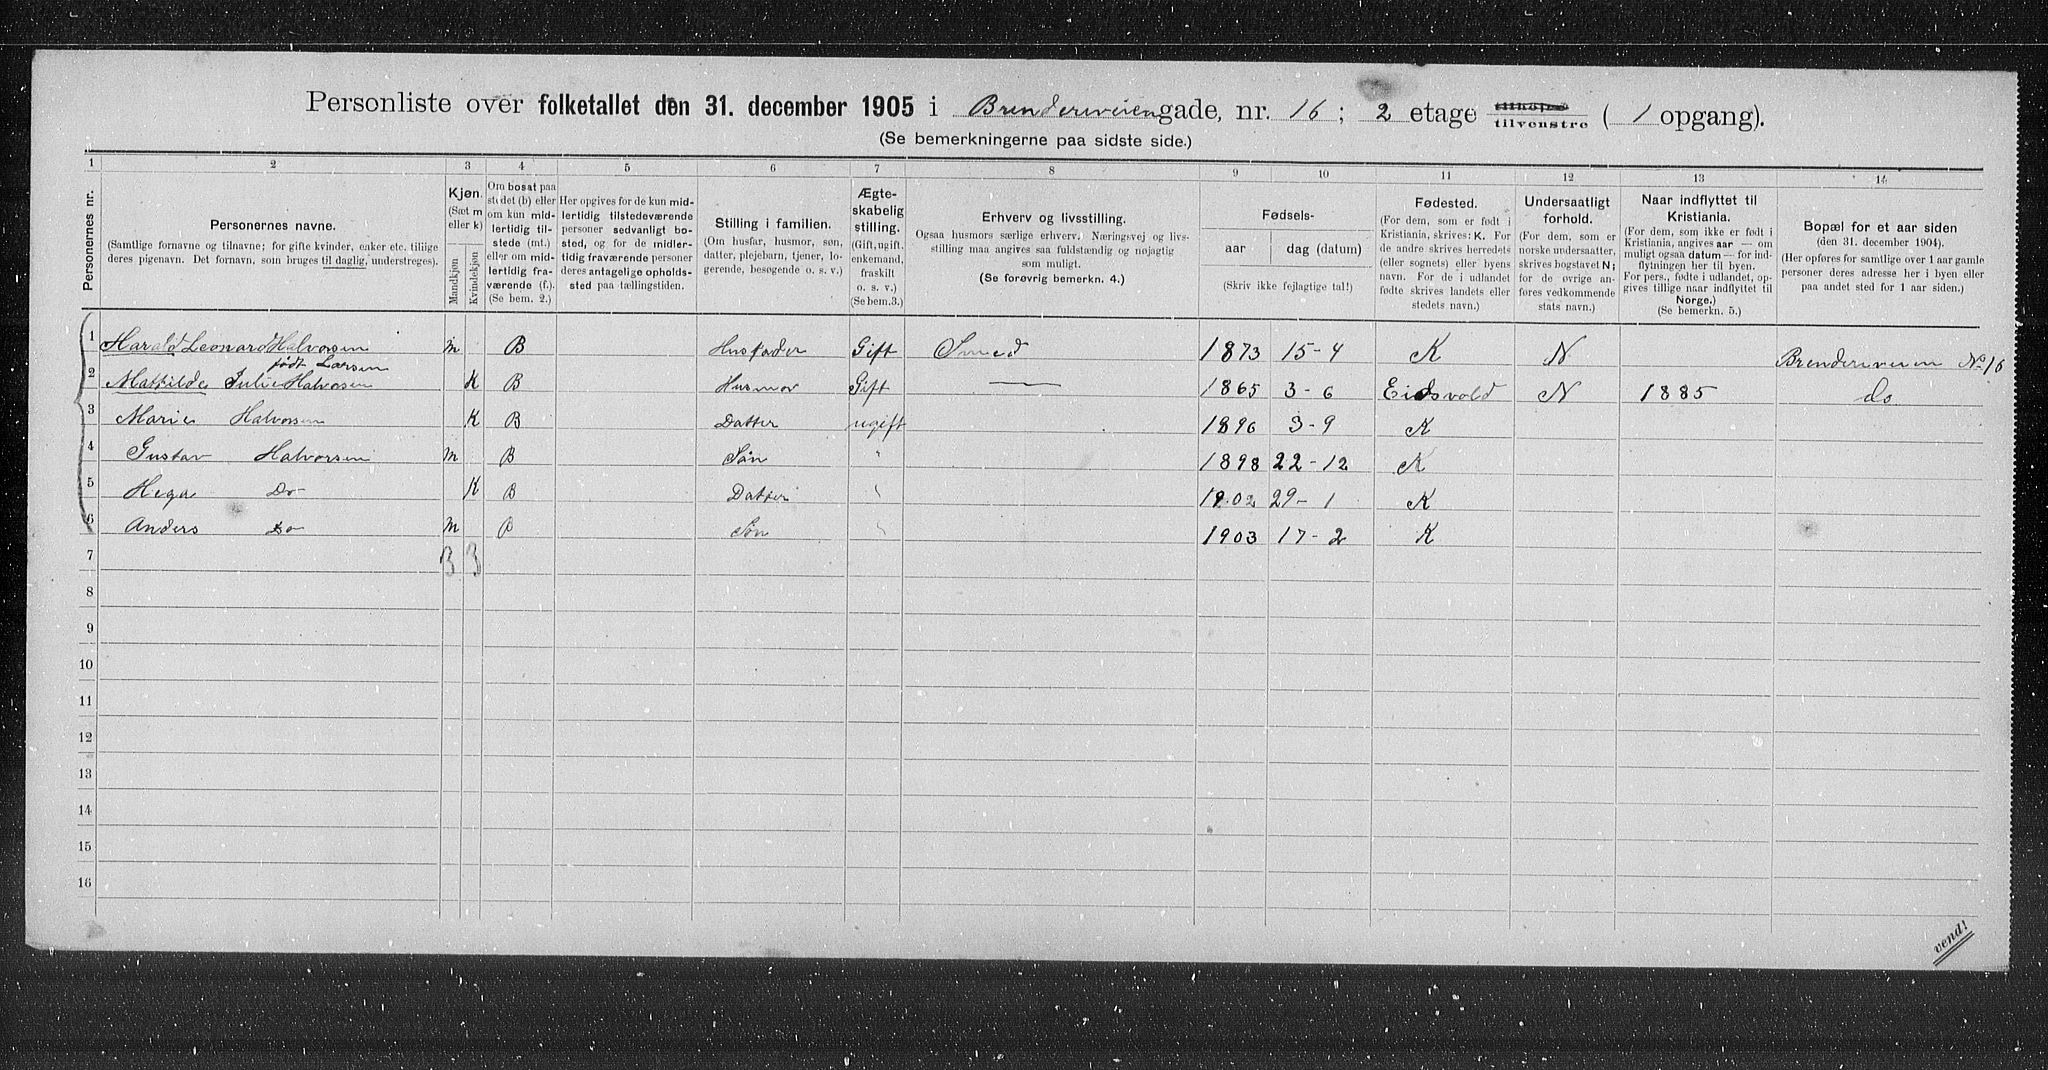 Personliste over folketallet den 31. december 1905 i Brenderiveiengade, nr. 16; 2 etage tilhøjre tilvenstre (1 opgang).
(Se bemerkningerne paa sidste side.)
1 2 3 4 5 6 7 8 9 10 11 12 13 14
Personernes nr.
Personernes navne.
(Samtlige fornavne og tilnavne; for gifte kvinder, enker etc. tillige
deres pigenavn. Det fornavn, som bruges til daglig, understreges).
Kjøn.
(Sæt m
eller k)
Mandkjøn
Kvindekjøn
Om bosat paa
stedet (b) eller
om kun mid-
lertidig til-
stede (mt.)
eller om mid-
lertidig fra-
værende (f.).
(Se bem. 2.)
Her opgives for de kun mid-
lertidig tilstedeværende
personer sedvanligt bo-
sted, og for de midler-
tidig fraværende personer
deres antagelige opholds-
sted paa tællingstiden.
Stilling i familien.
(Om husfar, husmor, søn,
datter, plejebarn, tjener, lo-
gerende, besøgende o. s. v.)
Ægte-
skabelig
stilling.
(Gift, ugift,
enkemand,
fraskilt
o. s. v.)
(Se bem.3.)
Erhverv og livsstilling.
Ogsaa husmors særlige erhverv. Næringsvej og livs-
stilling maa angives saa fuldstændig og nøjagtig
som muligt.
(Se forøvrig bemerkn. 4.)
Fødsels-
aar dag (datum)
(Skriv ikke fejlagtige tal!)
Fødested.
(For dem, som er født i
Kristiania, skrives: K. For
de andre skrives herredets
(eller sognets) eller byens
navn. For de i udlandet
fødte skrives landets eller
stedets navn.)
Undersaatligt
forhold.
(For dem, som er
norske undersaatter,
skrives bogstavet N;
for de øvrige an-
føres vedkommende
stats navn.)
Naar indflyttet til
Kristiania.
(For dem, som ikke er født i
Kristiania, angives aar — om
muligt ogsaa datum — for ind-
flytningen her til byen.
For pers., fødte i udlandet, op-
gives tillige naar indflyttet til
Norge.)
(Se bemerkn. 5.)
Bopæl for et aar siden
(den 31. december 1904).
(Her opføres for samtlige over 1 aar gamle
personer deres adresse her i byen eller
paa andet sted for 1 aar siden.)
1 Harald Leonard Halvorsen m B Husfader Gift Smed 1873 15-4 K N Brenderiveien No 16
født Larsen
2 Mathilde Julie Halvorsen K B Husmor Gift — 1865 3-6 Eidsvold N 1885 do
3 Marie Halvorsen K B Datter ugift 1896 3-9 K
4 Gustav Halvorsen m B Søn " 1898 22-12 K
5 Hega Do K B Datter " 1902 29-1 K
6 Anders Do m B Søn " 1903 17-2 K
7 3 3
8
9
10
11
12
13
14
15
16
vend!